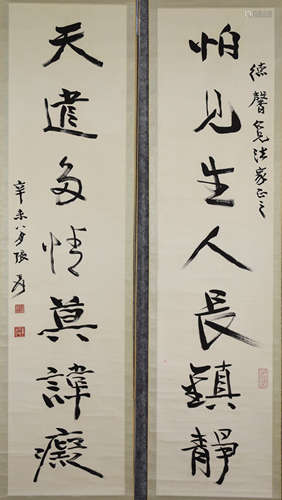 怕見生人長鎮靜
德馨兄法家正之
天遣多情莫諱癡
辛未八月張爰